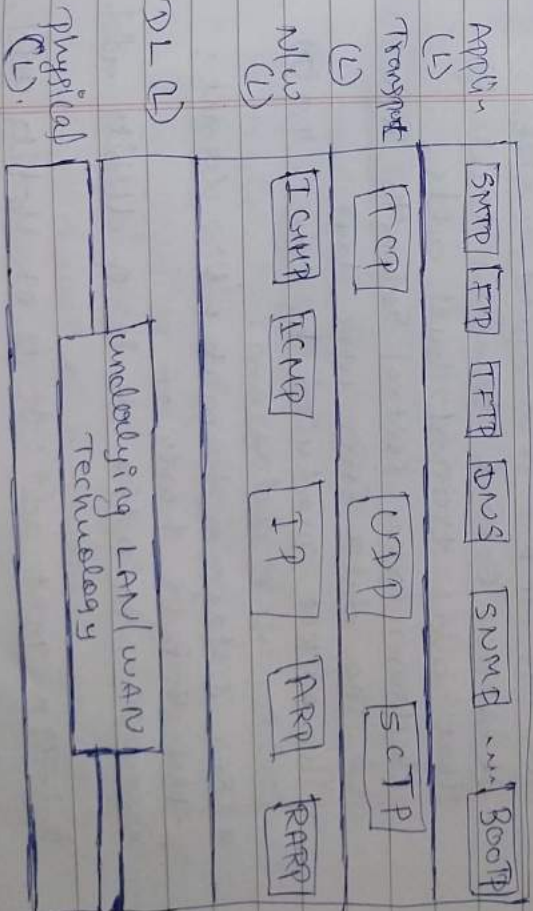 Appli~ (L) SMTP FTP TFTP DNS SNMP .... BOOTP
Transport (L) TCP UDP SCTP
N/w (L) IGMP ICMP IP ARP RARP
DL (L)
underlying LAN/WAN
Technology
physical (L).